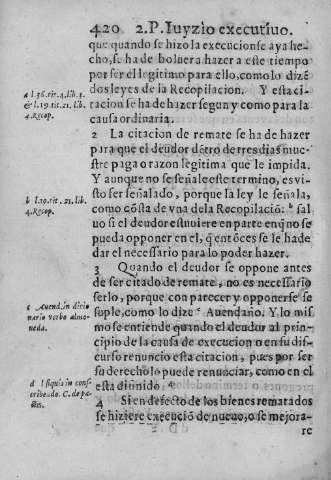 420 2. P. Iuyzio executiuo.
que quando se hizo la execucion se aya he-
cho, se ha de boluer a hazer a este tiempo
por ser el legitimo para ello, como lo dizẽ
a l.36.tit.4.lib.3.
dos leyes de la Recopilacion. Y esta ci-
& l.19.tit.21.lib.
tacion se ha de hazer segun y como para la
4.Recop.
causa ordinaria.
2 La citacion de remate se ha de hazer
para que el deudor dẽtro de tres dias mue-
stre paga o razon legitima que le impida.
Y aunque no se señale este termino, es vi-
sto ser señalado, porque la ley le señala,
b l.19.tit.21.lib.
4.Recop.
como cõsta de vna dela Recopilaciõ. b sal
uo si el deudor estuuiere en parte en q̃ no se
pueda opponer en el, q̃ entõces se le ha de
dar el necessario para lo poder hazer.
3 Quando el deudor se oppone antes
de ser citado de remate, no es necessario
serlo, porque con parecer y opponerse se
c Auend.in dictio
nario verbo almo-
neda.
suple, como lo dize c Auendaño. Y lo mis
mo se entiende quando el deudor al prin-
cipio de la causa de execucion o en su dis-
curso renuncio esta citacion, pues por ser
su derecho lo puede renunciar, como en el
d
esta difinido. d
4 Si en defecto de los bienes rematados
se hiziere execuciõ de nueuo, o se mejora-
re